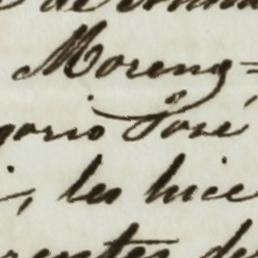 de
Moreno=
gorio José
, les hice
rentes de